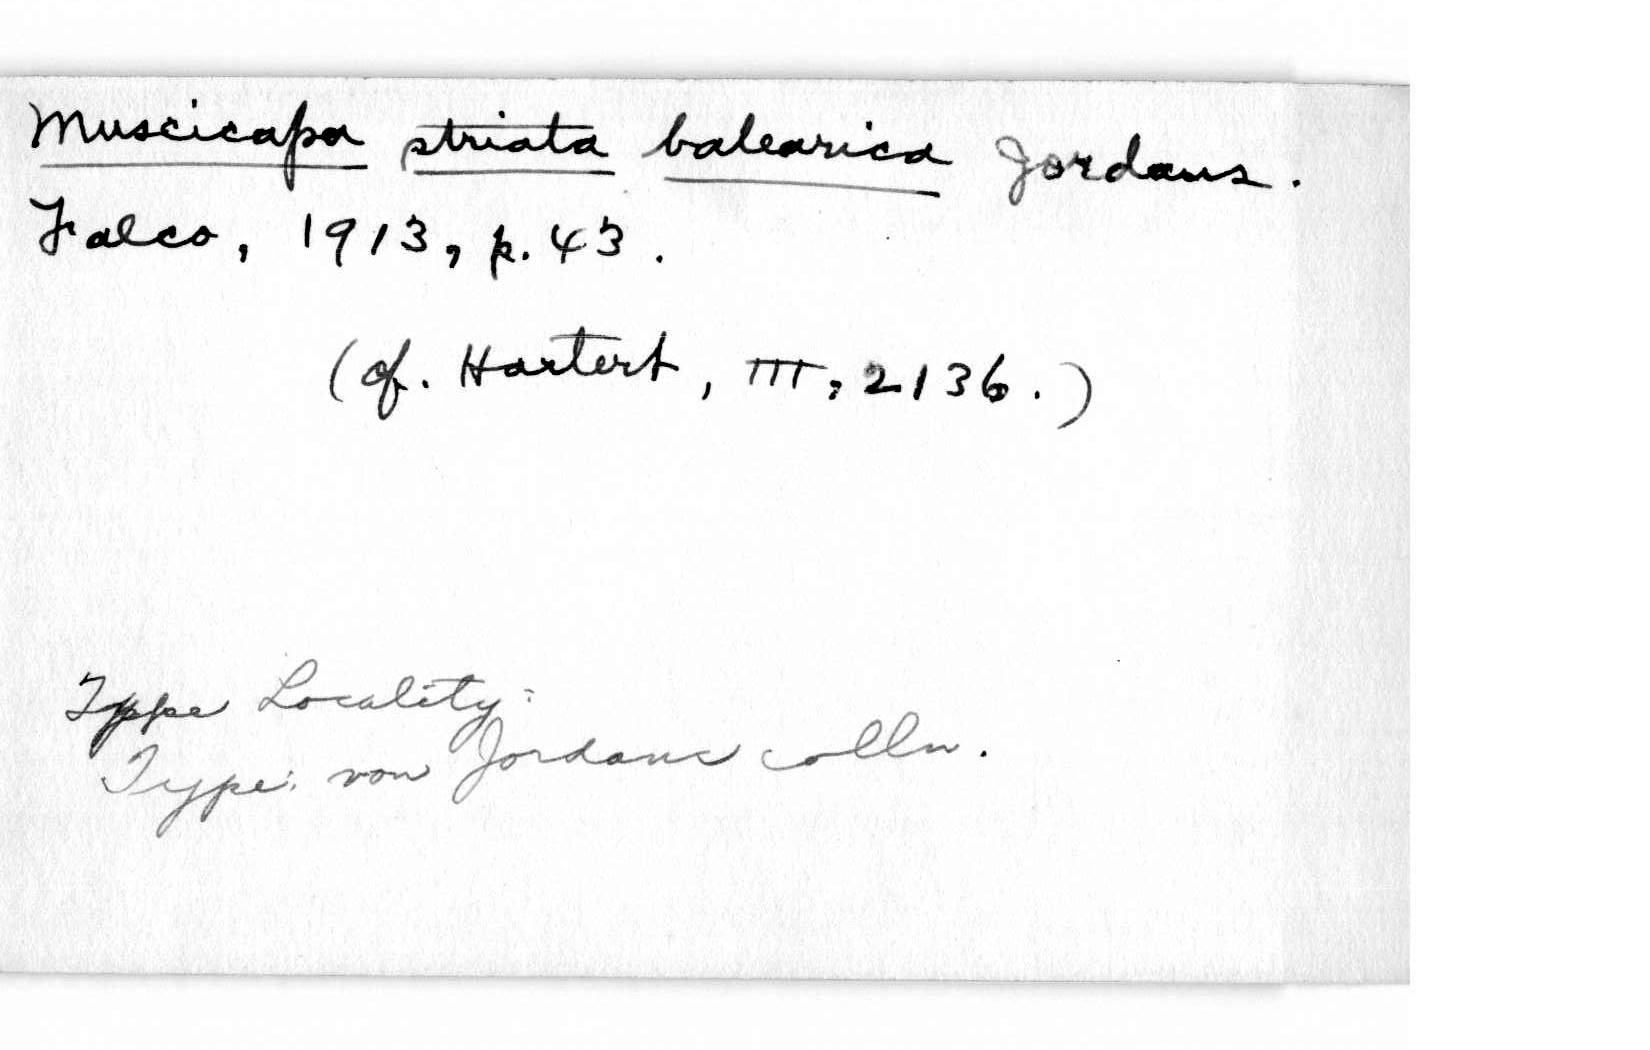 Muscicapa striata balearica Jordans.
Falco, 1913, p. 43.
(cf. Hartert, III, 2136.)
Type Locality:
Type: von Jordans colln.